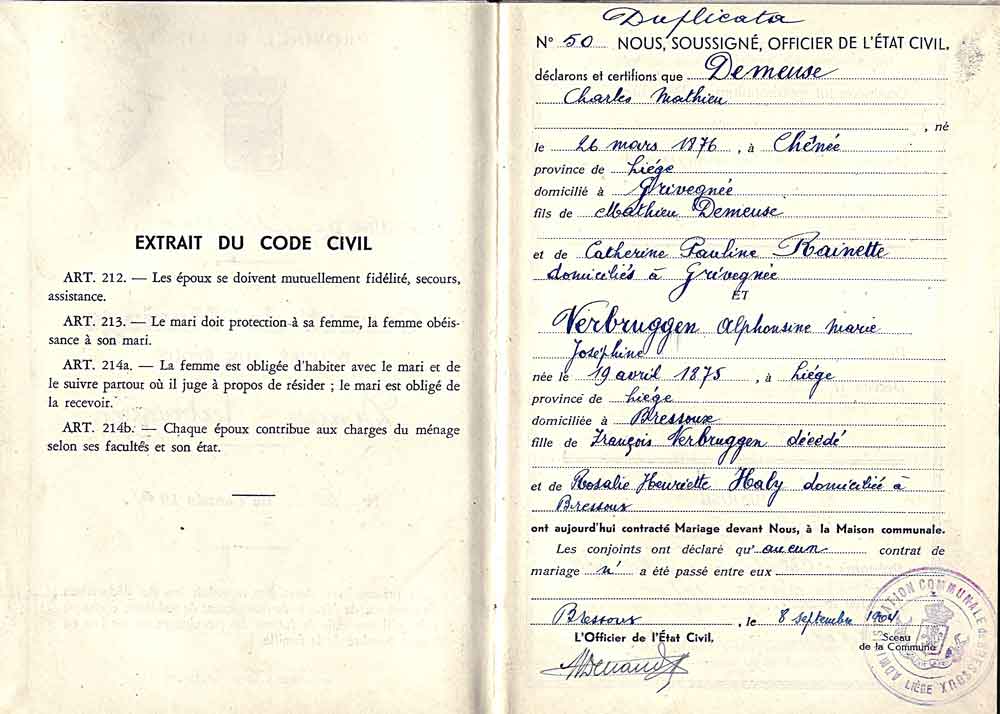 EXTRAIT DU CODE CIVIL
ART. 212. — Les époux se doivent mutuellement fidélité, secours,
assistance.
ART. 213. — Le mari doit protection à sa femme, la femme obéis-
sance à son mari.
ART. 214a. — La femme est obligée d'habiter avec le mari et de
le suivre partout où il juge à propos de résider ; le mari est obligé de
la recevoir.
ART. 214b. — Chaque époux contribue aux charges du ménage
selon ses facultés et son état.
Duplicata
N° 50 NOUS, SOUSSIGNÉ, OFFICIER DE L'ÉTAT CIVIL,
déclarons et certifions que Demeuse
Charles Mathieu
, né
le 26 mars 1876, à Chênée
province de Liége
domicilié à Grivegnée
fils de Mathieu Demeuse
et de Catherine Pauline Rainette
domiciliés à Grivegnée
ET
Verbruggen Alphonsine Marie
Joséphine
née le 19 avril 1875, à Liége
province de Liége
domiciliée à Bressoux
fille de François Verbruggen décédé
et de Rosalie Henriette Haly domiciliée à
Bressoux
ont aujourd'hui contracté Mariage devant Nous, à la Maison communale.
Les conjoints ont déclaré qu'aucun contrat de
mariage n' a été passé entre eux
Bressoux, le 8 septembre 1904
L'Officier de l'État Civil,
Sceau
de la Commune
ADMINISTRATION COMMUNALE de BRESSOUX
LIÈGE